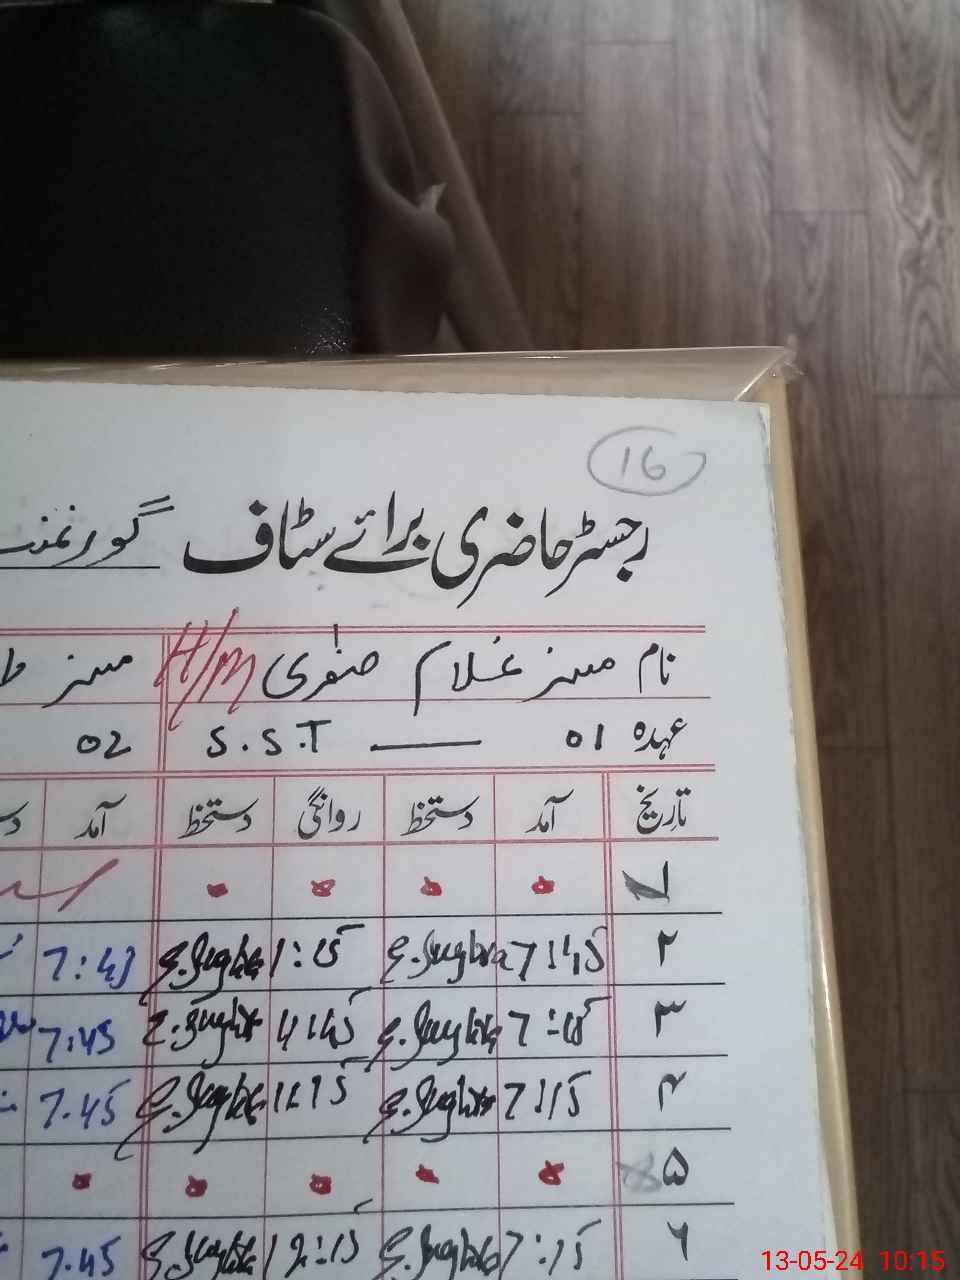 16
رجسٹر حاضری برائے سٹاف گورنمنٹ
نام مسز غلام صغریٰ H/M مسز
عہدہ 01 — S.S.T 02
تاریخ آمد دستخط روانگی دستخط آمد
۱
۲ 7:45 g. Sughra 1:15 g. Sughra 7:43
۳ g. Sughra g. Sughra 7:45
۴ 7:15 g. Sughra g. Sughra 7.45
۵
۶ 7:15 g. Sughra 12:15 g. Sughra 7.45
13-05-24 10:15